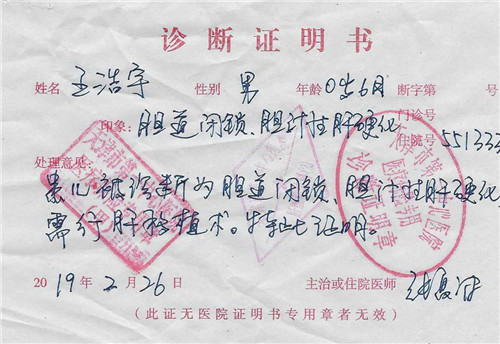 诊断证明书
姓名 王浩宇 性别 男 年龄 0岁6月 断字第 号
门诊号
印象: 胆道闭锁、胆汁性肝硬化
住院号 551333
处理意见:
患儿被诊断为胆道闭锁、胆汁性肝硬化
需行肝移植术。特此证明。
2019年2月26日 主治或住院医师
(此证无医院证明书专用章者无效)